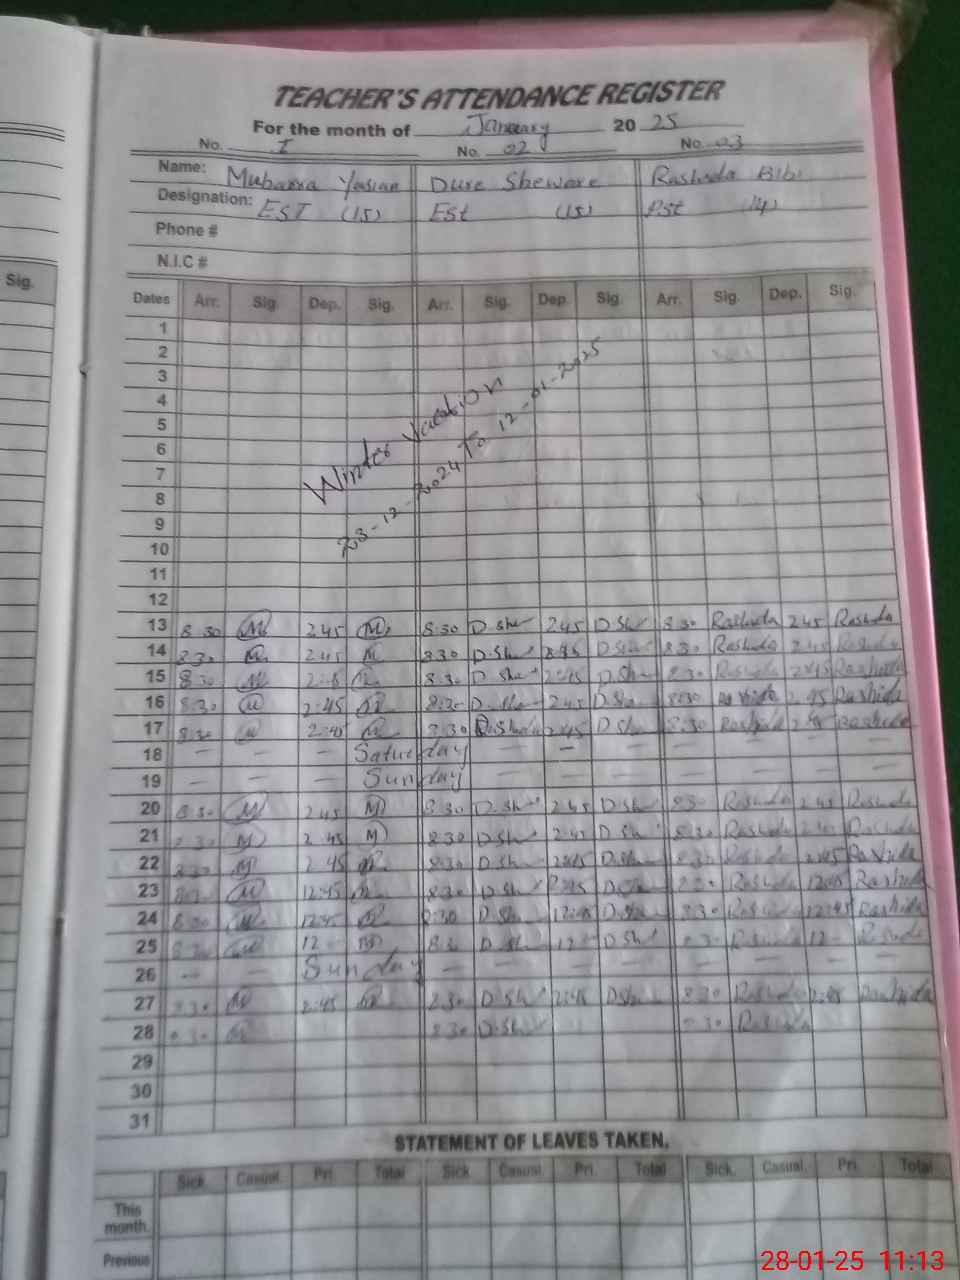 TEACHER'S ATTENDANCE REGISTER
For the month of January 20 25
No. I No. 02 No. 03
Name: Mubarra Yasian Dure Sheware Rashida Bibi
Designation: EST (15) Est (15) Pst (14)
Phone #
N.I.C #
Sig.
Dates Arr. Sig. Dep. Sig. Arr. Sig. Dep. Sig. Arr. Sig. Dep. Sig.
1
2
3
4
5
6
7
8
9
10
11
12
Winter Vacation
23-12-2024 To 12-01-2025
13 8.30 M 2.45 M 8.30 D.She 2.45 D.She 8.30 Rashida 2.45 Rashida
14 8.30 M 2.45 M 8.30 D.She D.She 8.30 Rashida 2.45 Rashida
15 8.30 M 8.30 D.She 2:45 D.She 8.30 Rashida 2:45 Rashida
16 8.30 M 2:45 D.She 2.45 D.She 8:30 Rashida 2.45 Rashida
17 8.30 M 2:45 8:30 D.She 2:45 D.She 8:30 Rashida Rashida
18 — — — Saturday — — — — — —
19 — — — Sunday — — — — — —
20 8.30 M 2.45 M 8.30 D.She 2.45 D.She 8.30 Rashida 2.45 Rashida
21 8.30 M 2.45 M 8.30 D.She 2.45 D.She 8.30 Rashida Rashida
22 8.30 M 2.45 8.30 D.She 2:45 D.She 8.30 Rashida 2:45 Rashida
23 M 12:45 8.30 D.She D.She 8.30 Rashida 12:45 Rashida
24 8.30 M 12:45 8:30 D.She 12:45 D.She 8.30 Rashida 12:45 Rashida
25 8.30 M 12 M D.She 12 D.She 8.30 Rashida 12 Rashida
26 — — Sunday — — — — — — — —
27 8.30 M 2:45 8.30 D.She 2:45 D.She 8.30 Rashida 2:45 Rashida
28 8.30 M 8.30 D.She 8.30 Rashida
29
30
31
STATEMENT OF LEAVES TAKEN.
Sick. Casual. Pri. Total Sick. Casual. Pri. Total Sick. Casual. Pri. Total
This
month.
Previous
28-01-25 11:13